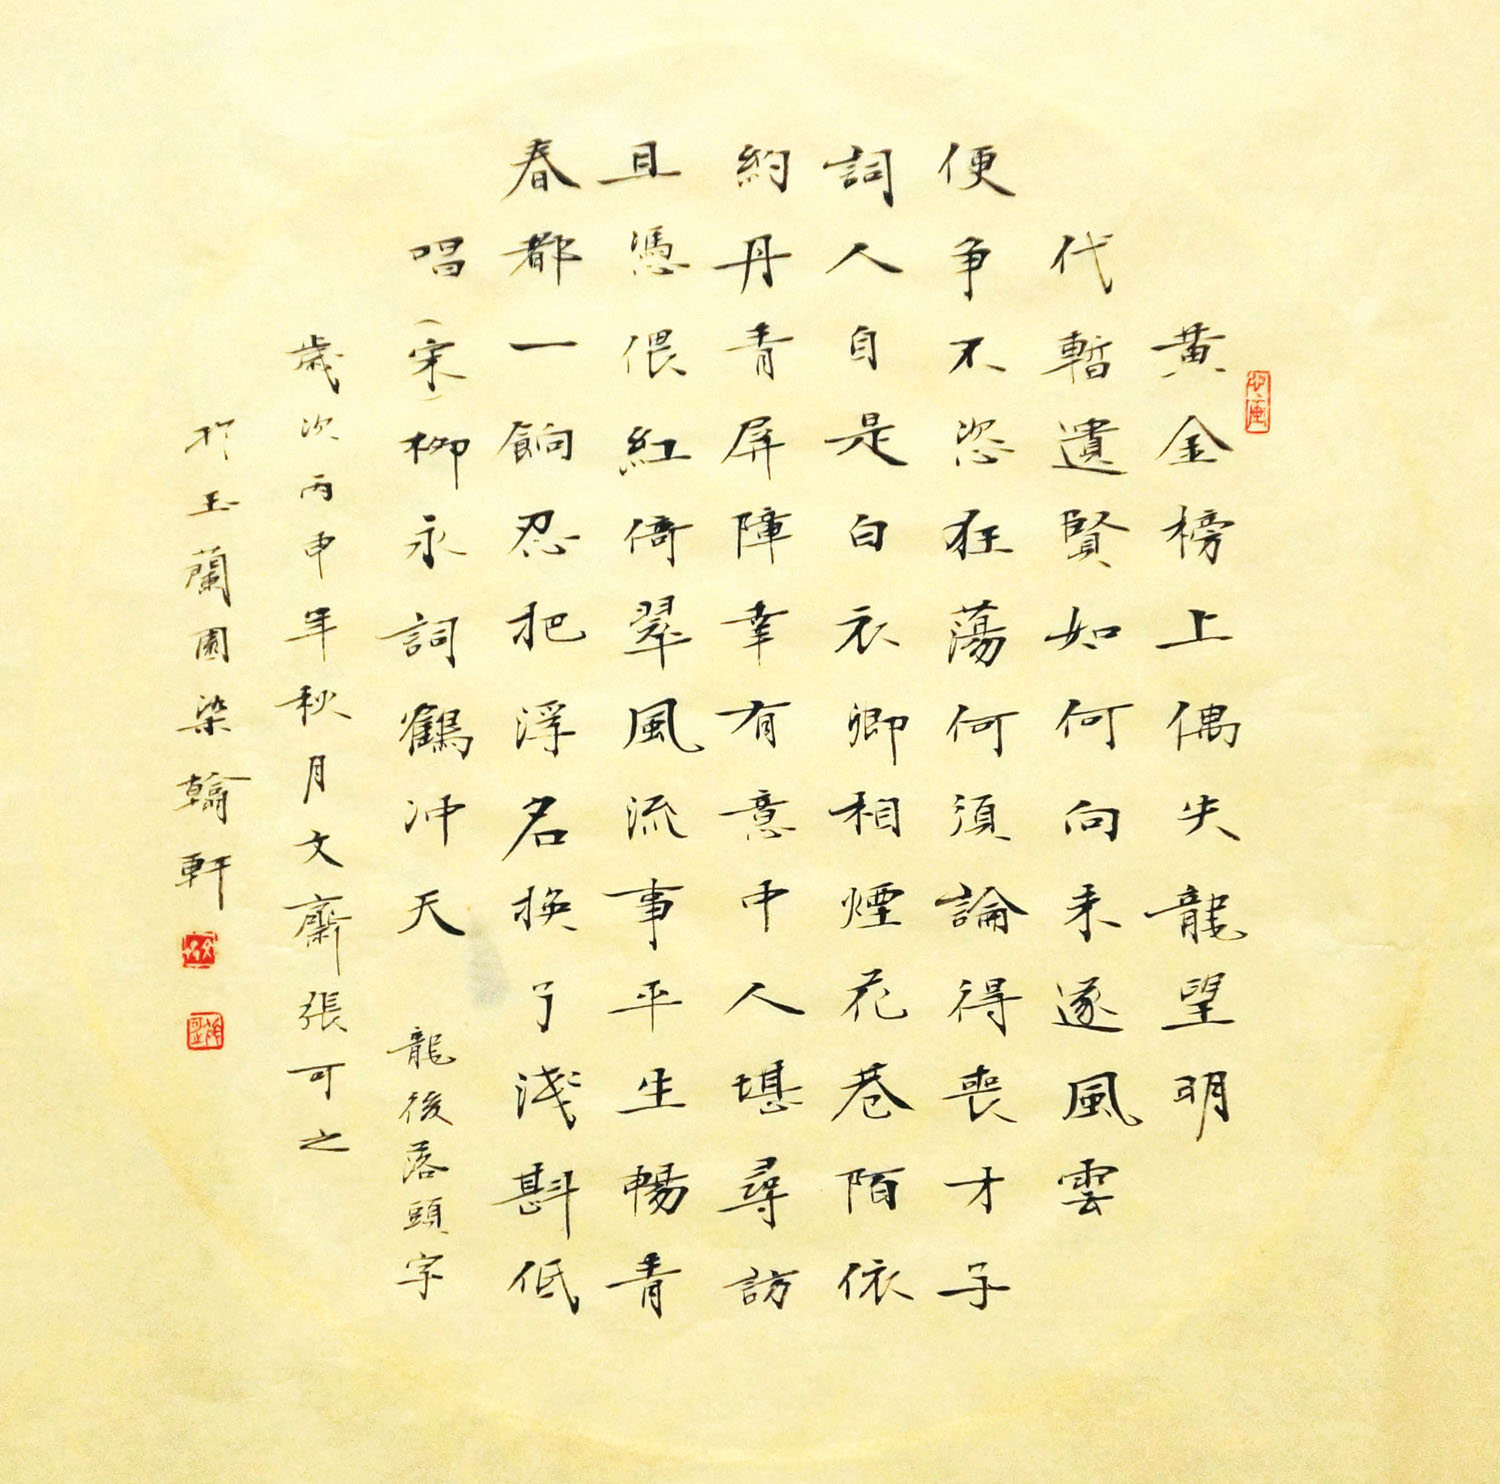 黃金榜上偶失龍望明
代暫遺賢如何向未遂風雲
便爭不恣狂蕩何須論得喪才子
詞人自是白衣卿相煙花巷陌依
約丹青屏障幸有意中人堪尋訪
且憑偎紅倚翠風流事平生暢青
春都一餉忍把浮名換了淺斟低
唱(宋)柳永詞鶴冲天
龍後落頭字
歲次丙申年秋月文齋張可之
於玉蘭園染翰軒